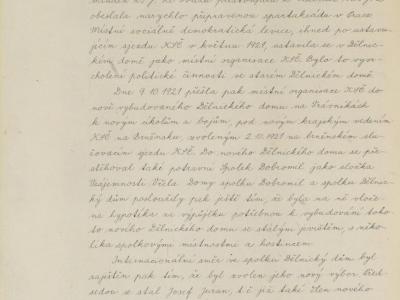 obeslala narychlo připravenou spartakiádu v Praze
Místní sociálně demokratická levice, ihned po ustavu-
jícím sjezdu KSČ v květnu 1921, ustavila se v Dělnic-
kém domě jako místní organisace KSČ. Bylo to vyvr-
cholení politické činnosti ve starém Dělnickém domě.
Dne 9. 10. 1921 přešla pak místní organisace KSČ do
nově vybudovaného Dělnického domu na
k novým úkolům a bojům, pod novým krajským vedením
KSČ na Brněnsku, zvoleným 2. 10. 1921 na brněnském slu-
čovacím sjezdu KSČ. Do nového Dělnického domu se pře-
stěhoval také potravní spolek Dobromil jako složka
Vzájemnosti Včela. Domy spolku Dobromil a spolku Dělnic-
ký dům posloužily pak ještě tím, že byla na ně vlože-
na hypotéka za výpůjku potřebnou k vybudování toho-
to nového Dělnického domu se stálým jevištěm, s něko-
lika spolkovými místnostmi a hostincem.
Internacionální směr ve spolku Dělnický dům byl
zajištěn pak tím, že byl zvolen jeho nový výbor
sedou se stal Josef Juran, t. č. již také člen nového